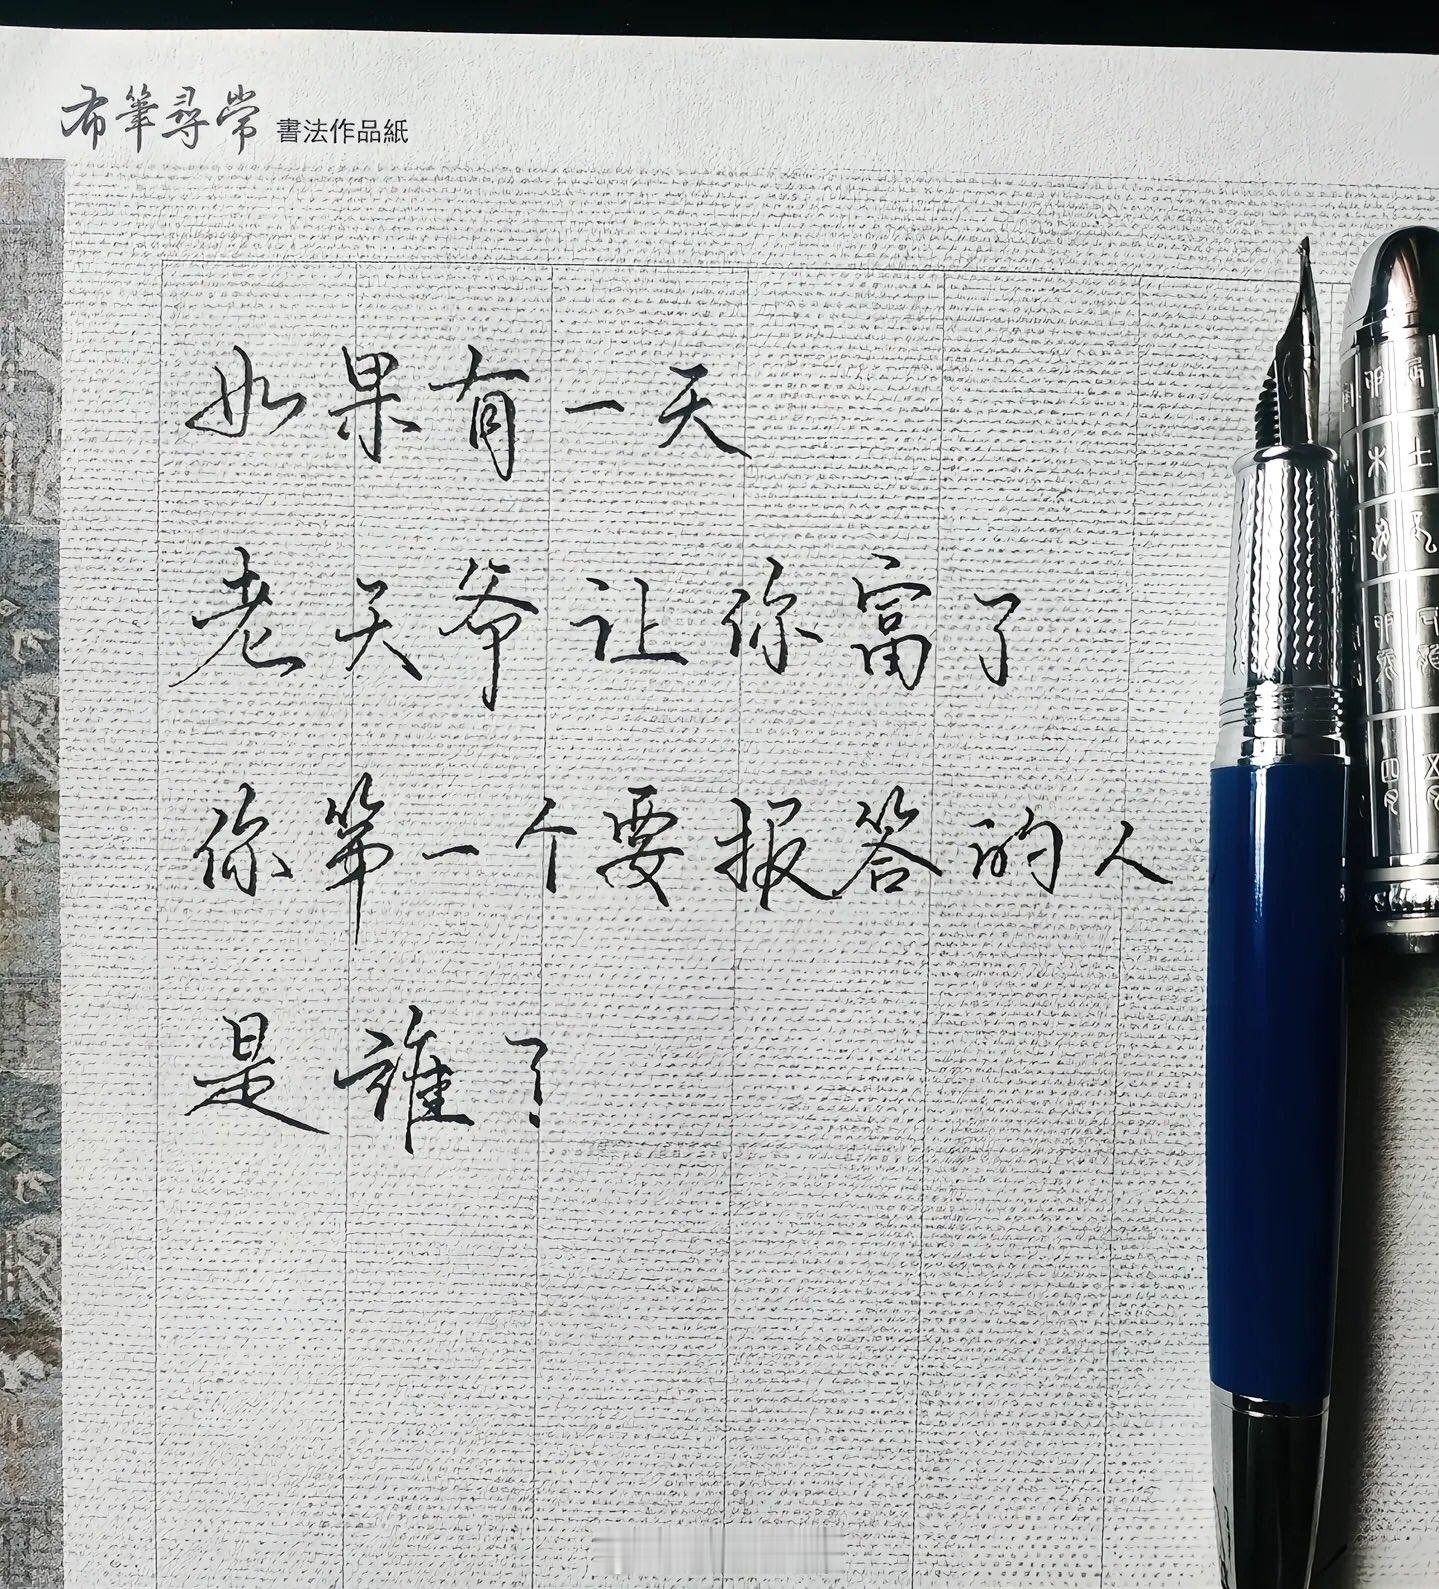 布筆尋常 書法作品紙
如果有一天
老天爷让你富了
你第一个要报答的人
是誰?